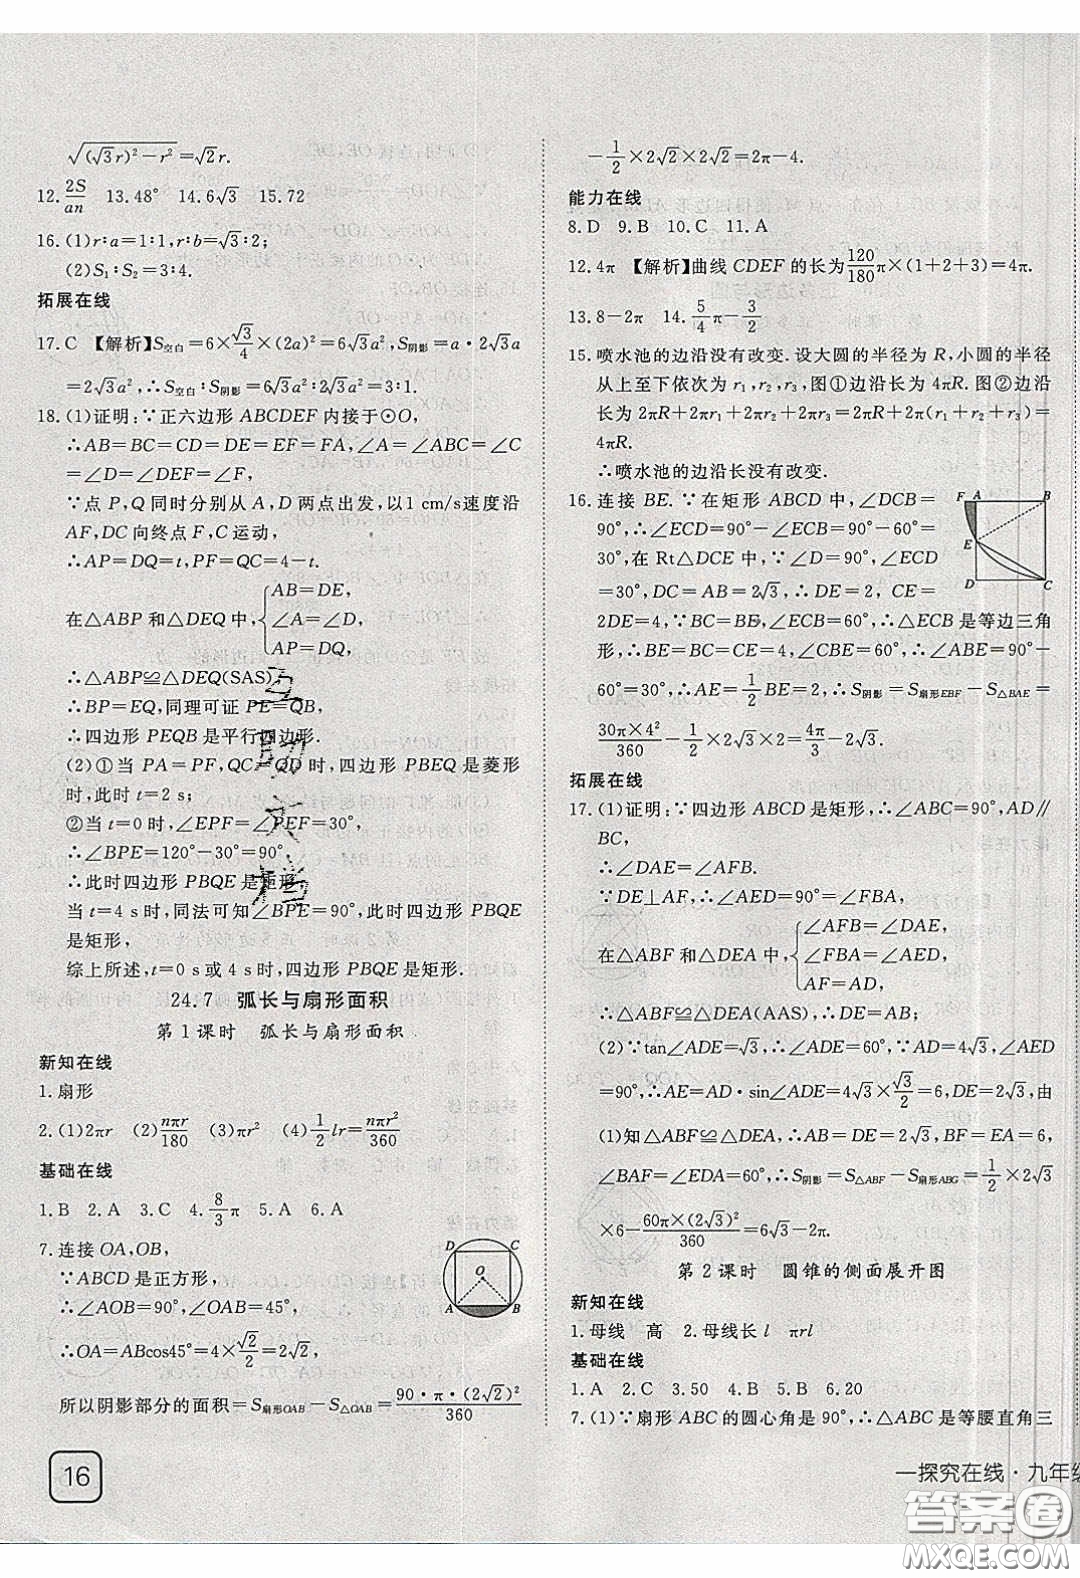 √((√3r)²-r²)=√2r.
12.2S/an 13.48° 14.6√3 15.72
16.(1)r∶a=1∶1,r∶b=√3∶2;
(2)S₁∶S₂=3∶4.
拓展在线
17.C 【解析】S空白=6×√3/4×(2a)²=6√3a²,S阴影=a·2√3a
=2√3a²,∴S空白∶S阴影=6√3a²∶2√3a²=3∶1.
18.(1)证明:∵正六边形ABCDEF内接于⊙O,
∴AB=BC=CD=DE=EF=FA,∠A=∠ABC=∠C
=∠D=∠DEF=∠F,
∵点P,Q同时分别从A,D两点出发,以1 cm/s速度沿
AF,DC向终点F,C运动,
∴AP=DQ=t,PF=QC=4-t.
在△ABP和△DEQ中,{AB=DE,
∠A=∠D,
AP=DQ,
∴△ABP≌△DEQ(SAS).
∴BP=EQ,同理可证PE=QB,
∴四边形PEQB是平行四边形.
(2)①当PA=PF,QC=QD时,四边形PBEQ是菱形
时,此时t=2 s;
②当t=0时,∠EPF=∠PEF=30°,
∴∠BPE=120°-30°=90°,
∴此时四边形PBQE是矩形.
当t=4 s时,同法可知∠BPE=90°,此时四边形PBQE
是矩形,
综上所述,t=0 s或4 s时,四边形PBQE是矩形.
24.7 弧长与扇形面积
第1课时 弧长与扇形面积
新知在线
1.扇形
2.(1)2πr (2)nπr/180 (3)πr² (4)1/2lr=nπr²/360
基础在线
1.B 2.A 3.C 4.8/3π 5.A 6.A
7.连接OA,OB,
∵ABCD是正方形,
∴∠AOB=90°,∠OAB=45°,
∴OA=ABcos45°=4×√2/2=2√2,
所以阴影部分的面积=S扇形OAB-S△OAB=90·π·(2√2)²/360
D C
O
A B
16
-1/2×2√2×2√2=2π-4.
能力在线
8.D 9.B 10.C 11.A
12.4π 【解析】曲线CDEF的长为120/180π×(1+2+3)=4π.
13.8-2π 14.5/4π-3/2
15.喷水池的边沿没有改变.设大圆的半径为R,小圆的半径
从上至下依次为r₁,r₂,r₃,图①边沿长为4πR.图②边沿
长为2πR+2πr₁+2πr₂+2πr₃=2πR+2π(r₁+r₂+r₃)=
4πR.
∴喷水池的边沿长没有改变.
16.连接BE.∵在矩形ABCD中,∠DCB=
90°,∴∠ECD=90°-∠ECB=90°-60°=
30°,在Rt△DCE中,∵∠D=90°,∠ECD
=30°,DC=AB=2√3,∴DE=2,CE=
2DE=4,∵BC=BE,∠ECB=60°,∴△ECB是等边三角
形,∴BE=BC=CE=4,∠EBC=60°,∴∠ABE=90°-
60°=30°,∴AE=1/2BE=2,∴S阴影=S扇形EBF-S△BAE=
30π×4²/360-1/2×2√3×2=4π/3-2√3.
F A B
E
D C
拓展在线
17.(1)证明:∵四边形ABCD是矩形,∴∠ABC=90°,AD∥
BC,
∴∠DAE=∠AFB.
∵DE⊥AF,∴∠AED=90°=∠FBA,
在△ABF和△DEA中,{∠AFB=∠DAE,
∠FBA=∠AED,
AF=AD,
∴△ABF≌△DEA(AAS),∴DE=AB;
(2)∵tan∠ADE=√3,∴∠ADE=60°,∵AD=4√3,∠AED
=90°,∴AE=AD·sin∠ADE=4√3×√3/2=6,DE=2√3,由
(1)知△ABF≌△DEA,∴AB=DE=2√3,BF=EA=6,
∠BAF=∠EDA=60°,∴S阴影=S△ABF-S扇形ABG=1/2×2√3
×6-60π×(2√3)²/360=6√3-2π.
第2课时 圆锥的侧面展开图
新知在线
1.母线 高 2.母线长l πrl
基础在线
1.A 2.C 3.50 4.A 5.B 6.20
7.(1)∵扇形ABC的圆心角是90°,∴△ABC是等腰直角三
一探究在线·九年级
答案圈
MXQE.COM